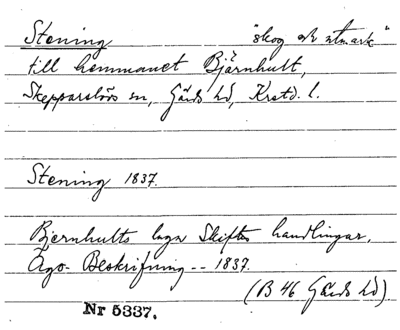 Stening "skog och utmark"
till hemmanet Bjärnhult,
Skepparslövs sn, Gärds hd, Krstd. l.
Stening 1837.
Bjernhults laga Skiftes handlingar.
Ägo-Beskrifning -- 1837.
(B 46 Gärds hd)
Nr 5337.